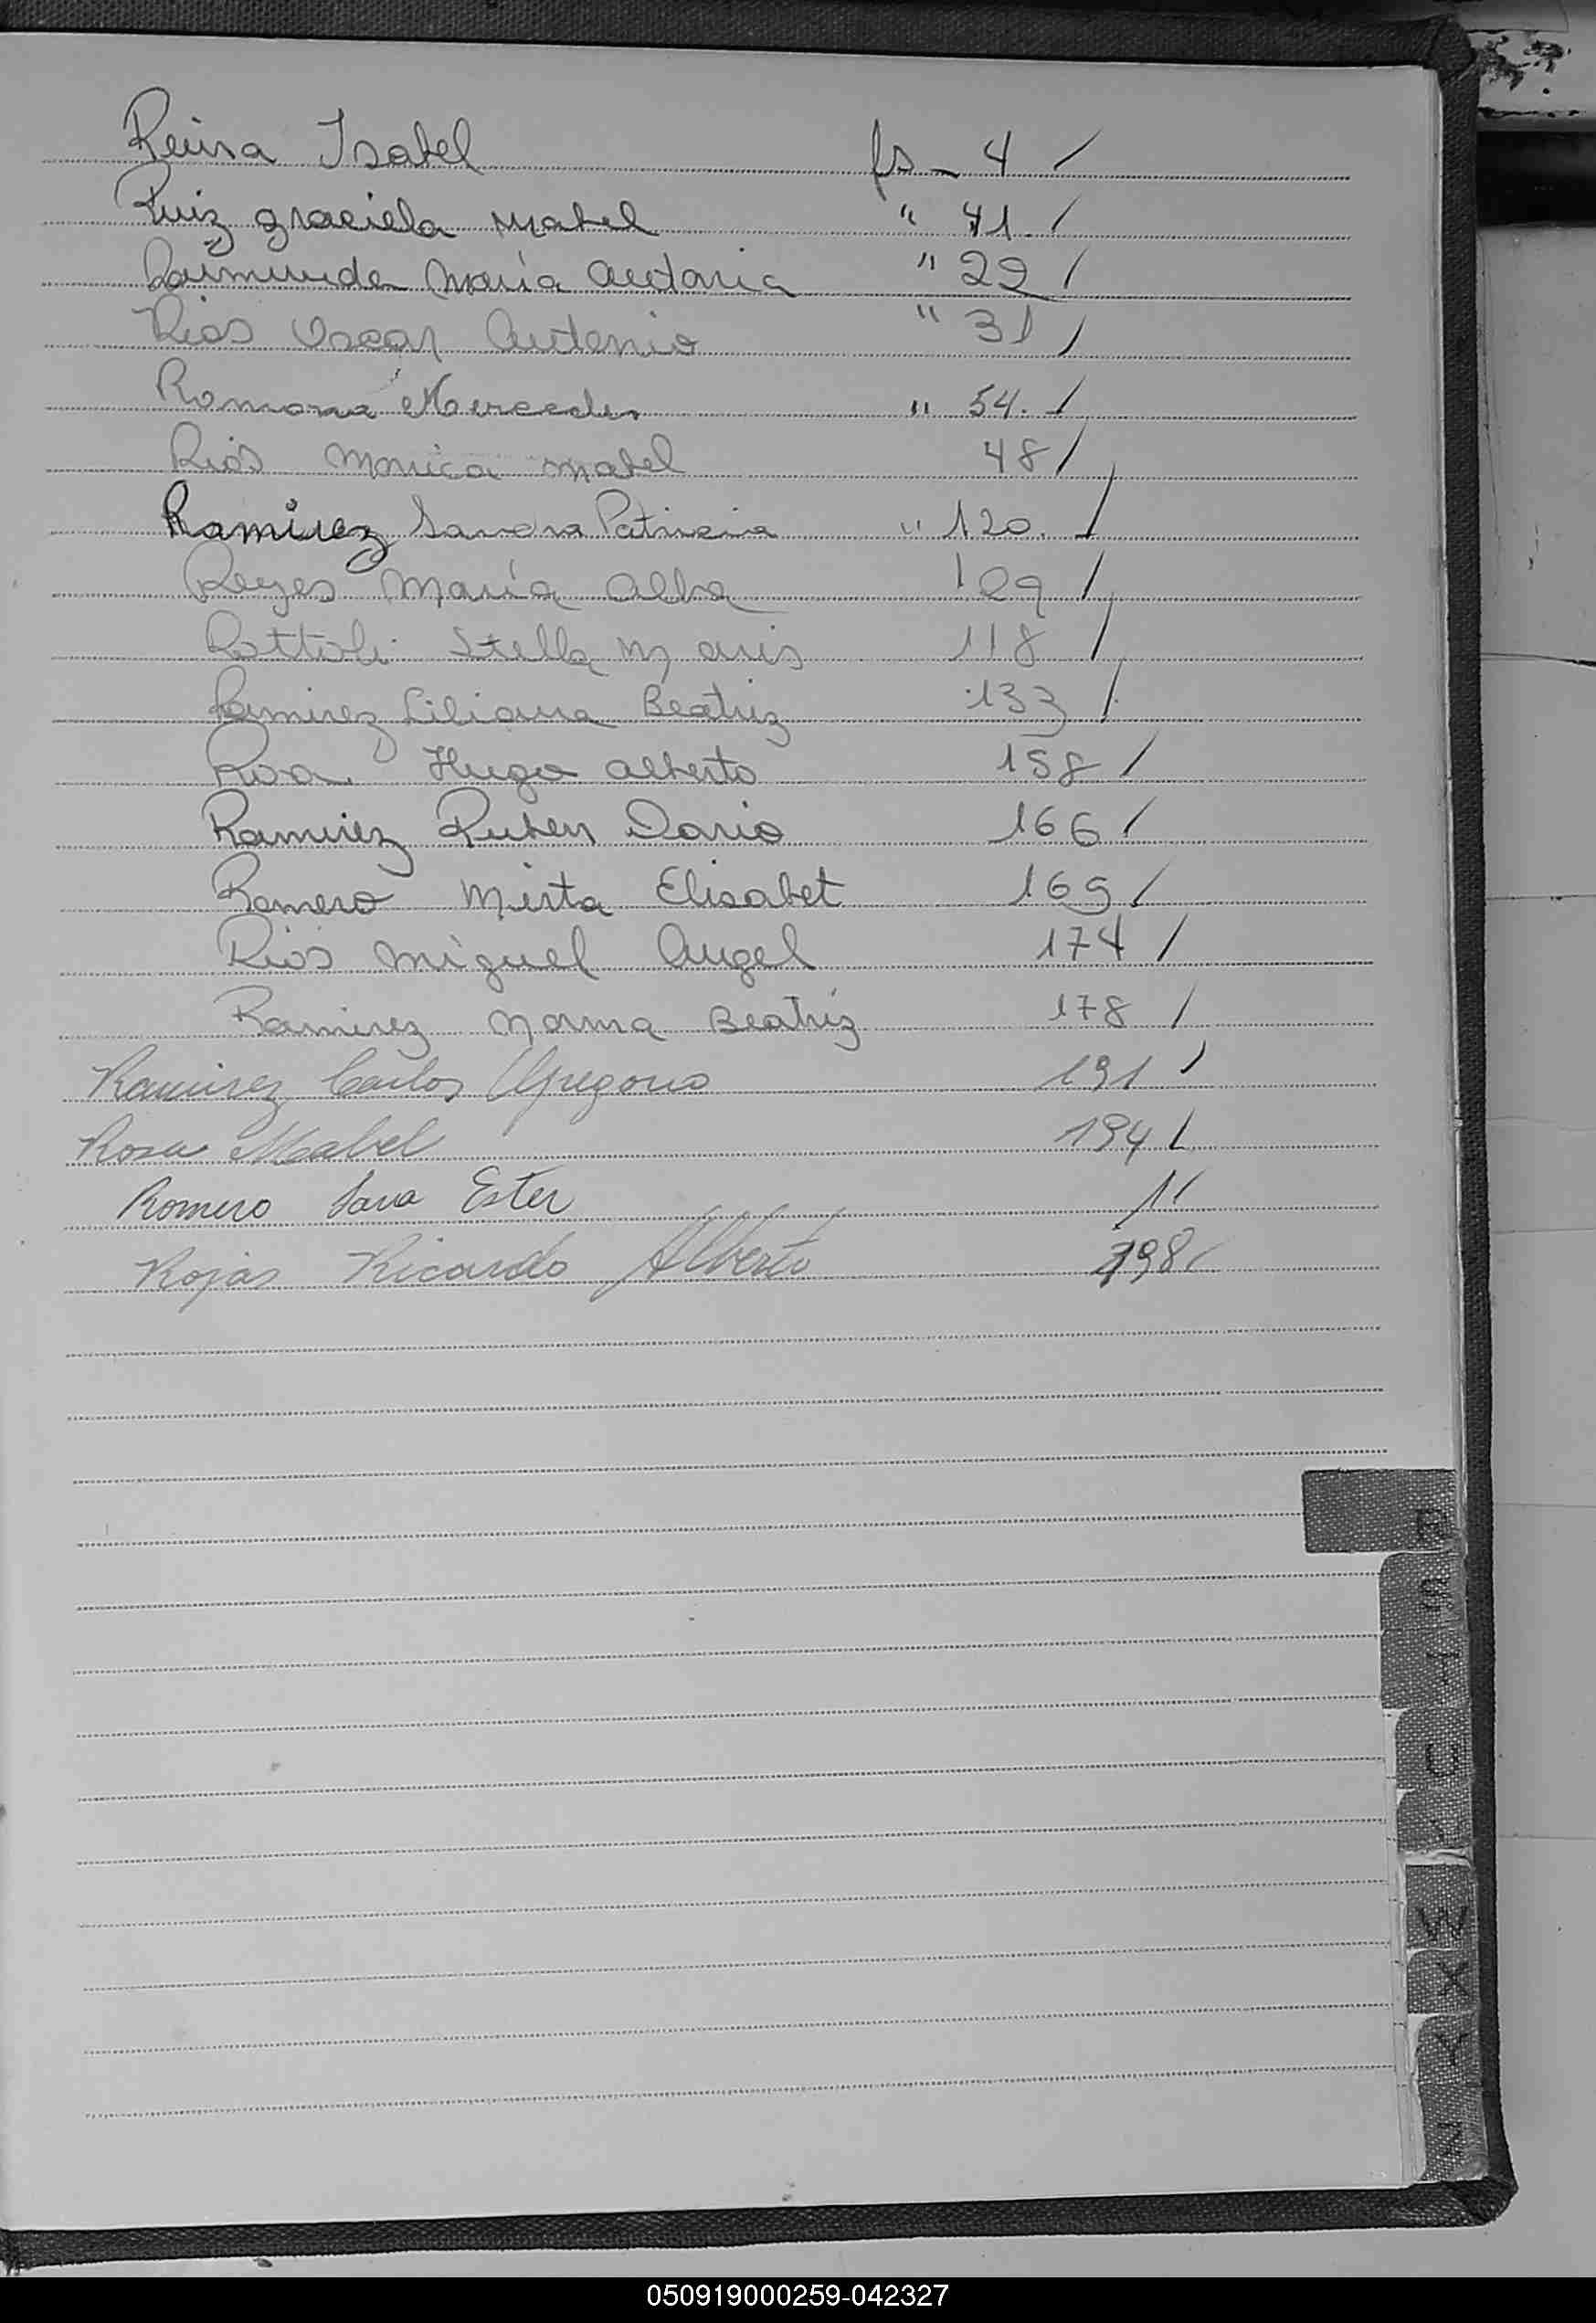 Reina Isabel fs - 4 /
Ruiz Graciela Mabel " 41. /
Raimunda María Antonia " 22 /
Rios Oscar Antonio " 31 /
Romona Mercedes " 54. /
Rios Monica Mabel 48 /
Ramirez Sandra Patricia " 120. /
Reyes María Alba 129 /
Rottoli Stella Maris 118 /
Ramirez Liliana Beatriz 133 /
Roa Hugo Alberto 158 /
Ramirez Ruben Dario 166 /
Romero Mirta Elisabet 169 /
Rios Miguel Angel 174 /
Ramirez Norma Beatriz 178 /
Ramirez Carlos 191 /
Rosa Mabel 194 /
Romero Sara Ester
Rojas Ricardo Alberto 198 /
R
S
T
U
V
W
X
Y
Z
050919000259-042327